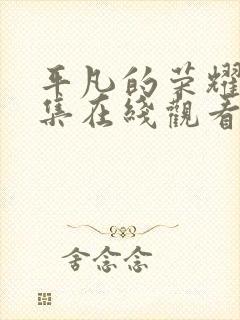 平凡的荣耀
集在线觀看
舍念念